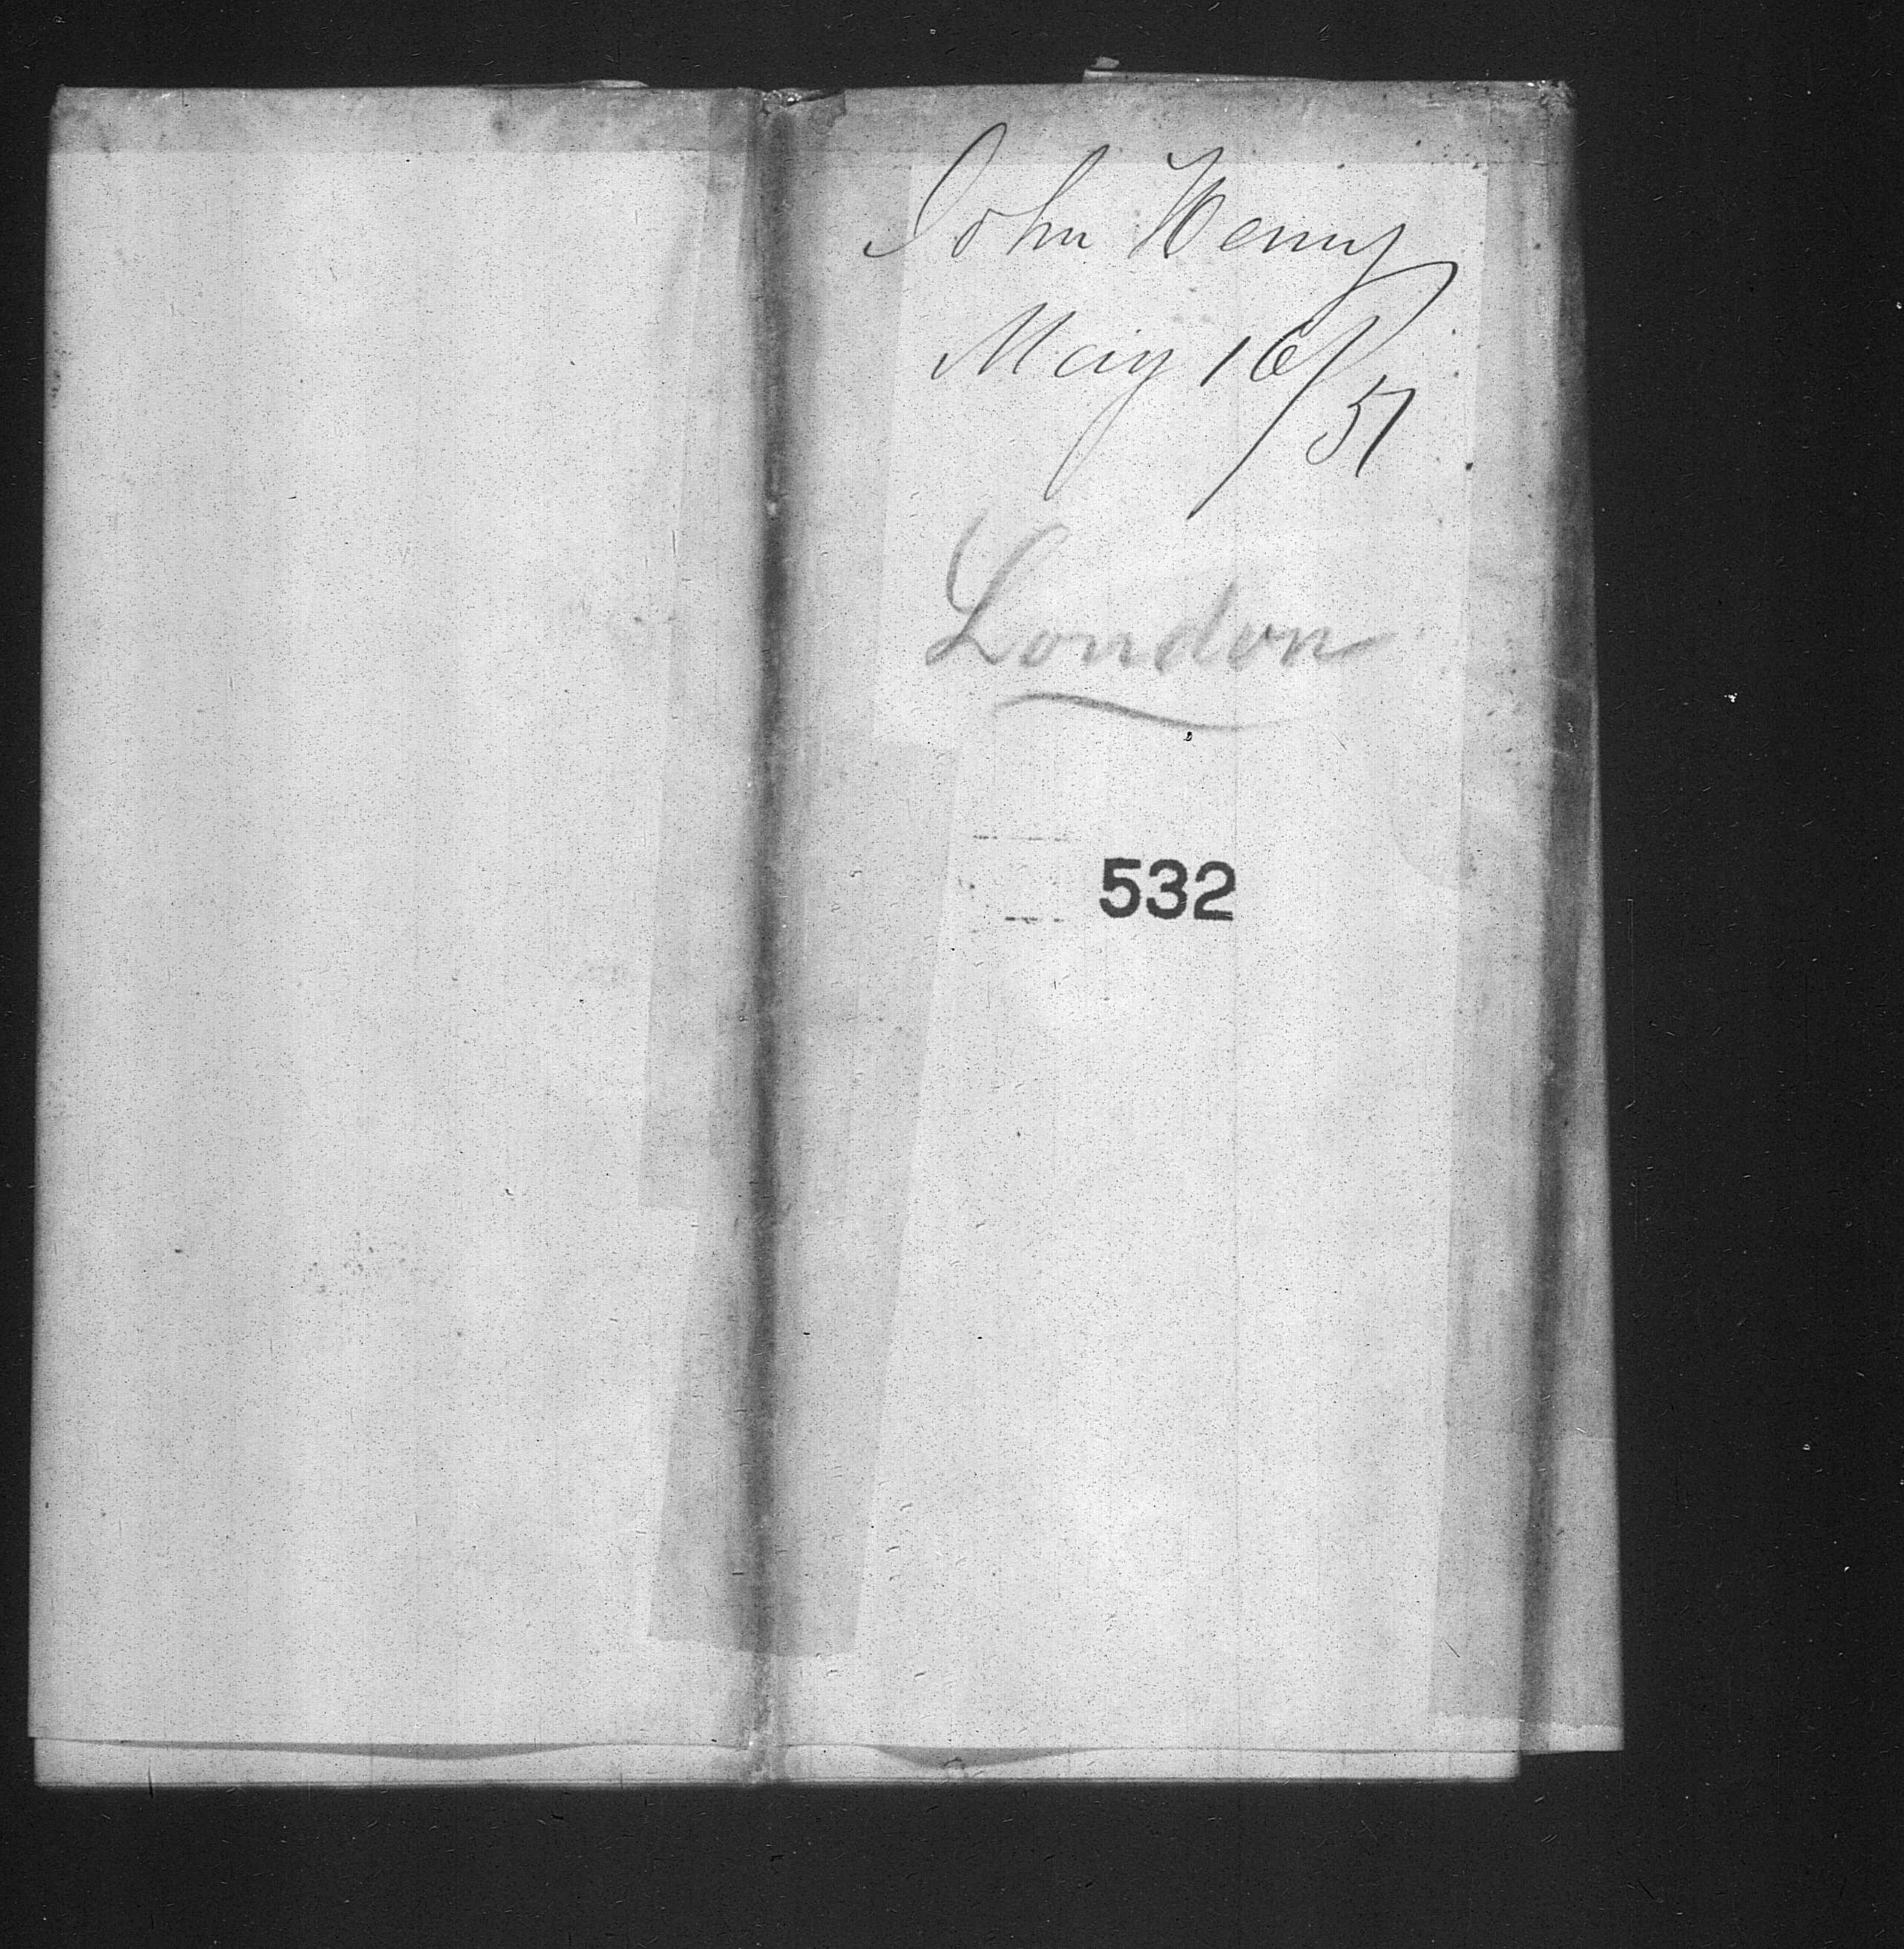 John Henry
May 16/51
London
532